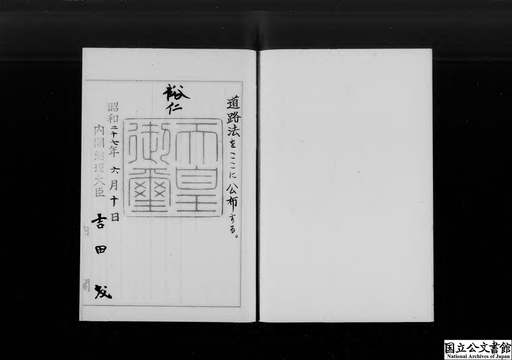 道路法をここに公布する。
裕仁
天皇
御璽
昭和二十七年六月十日
内閣総理大臣
吉田茂
国立公文書館
National Archives of Japan